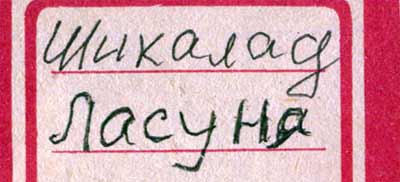 Шикалад
Ласуна